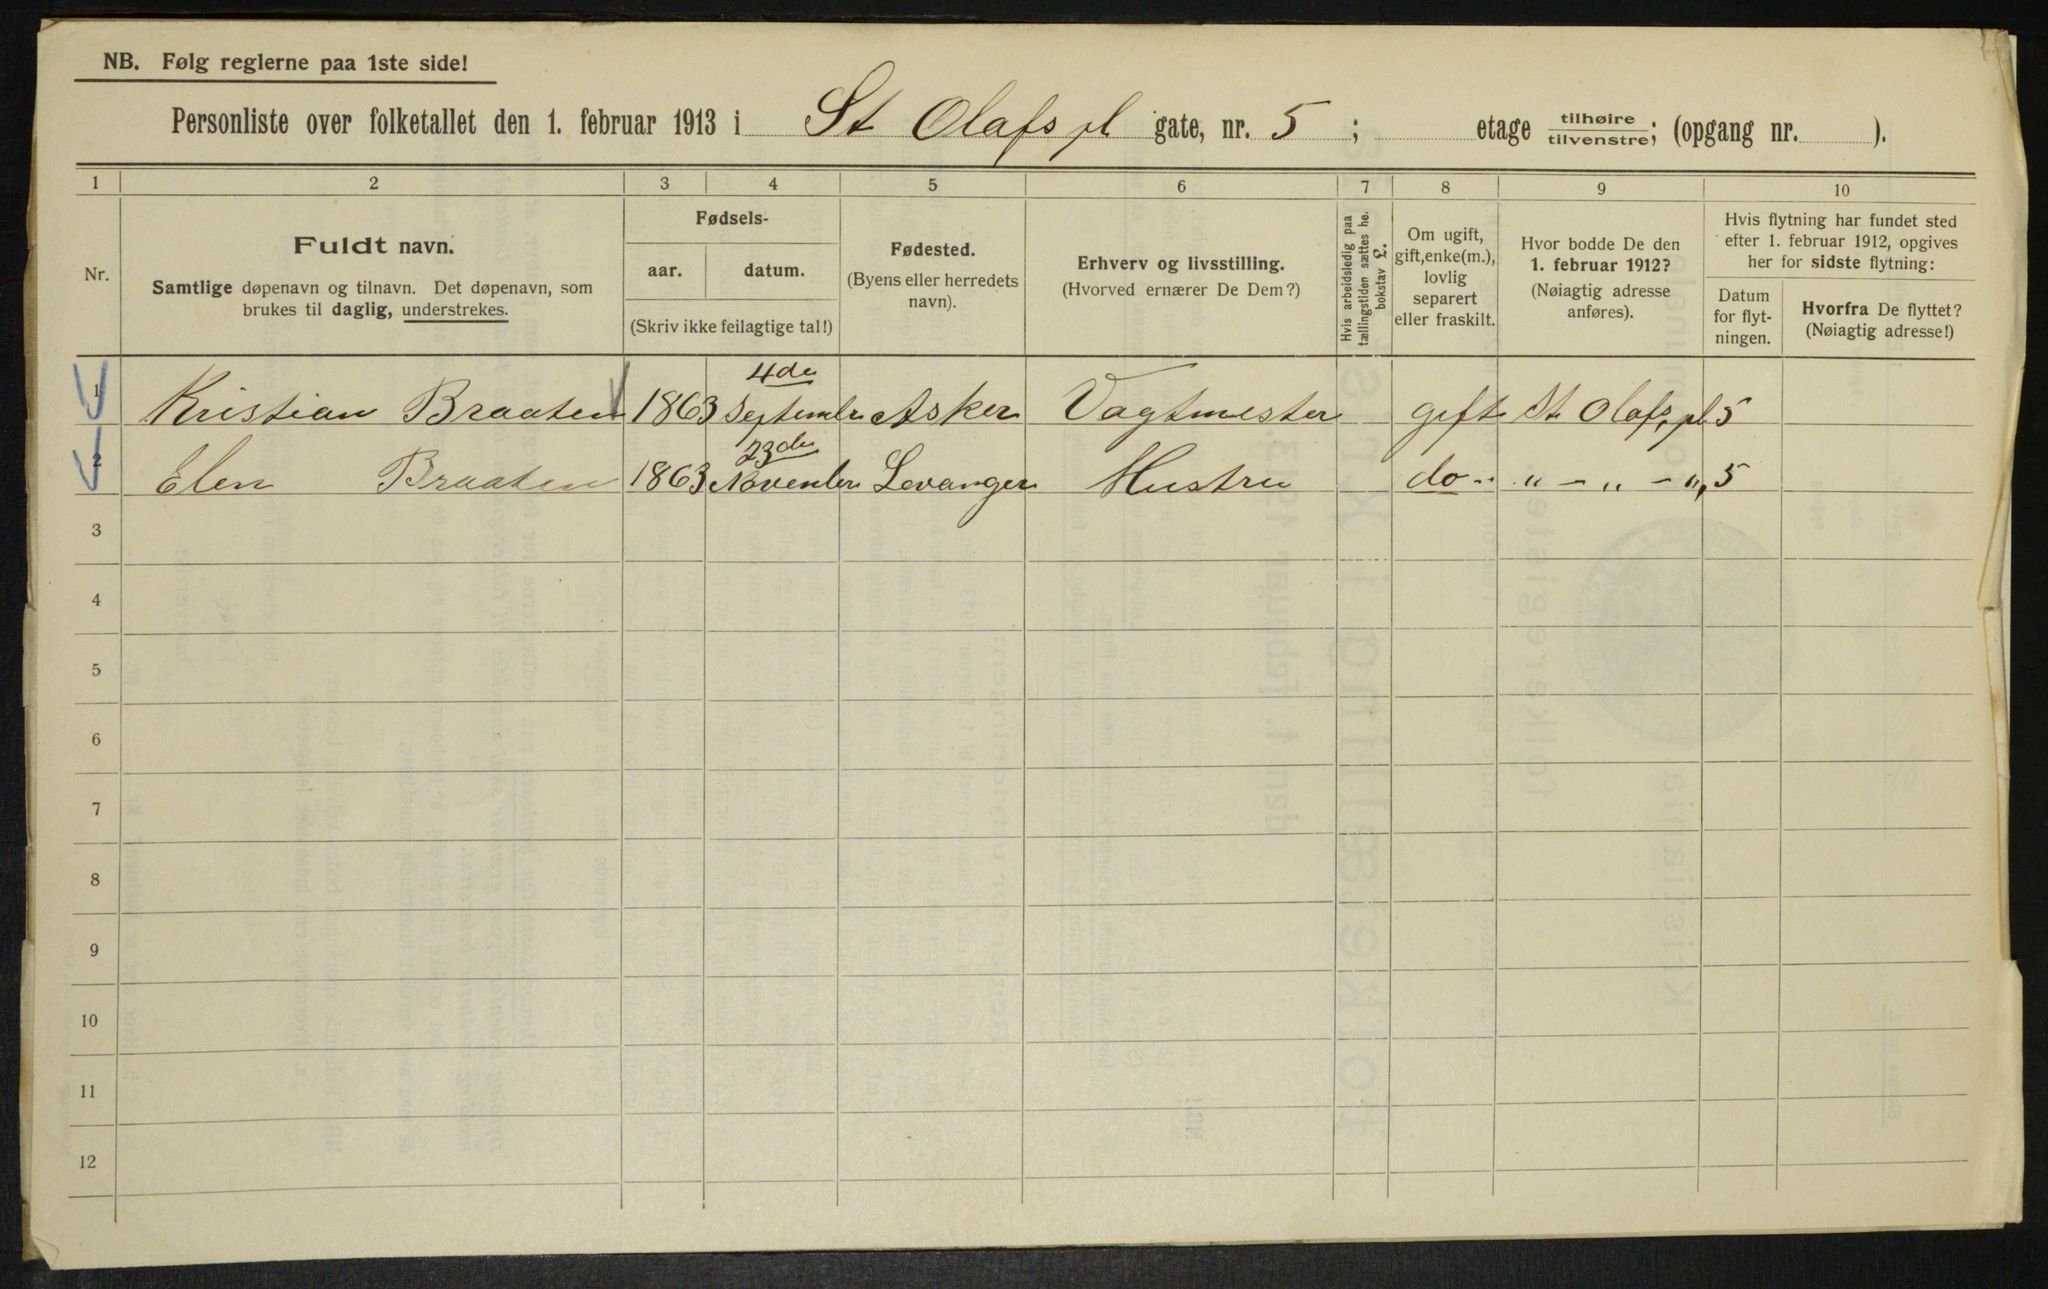 NB. Følg reglerne paa 1ste side!
Personliste over folketallet den 1. februar 1913 i St Olafs pl gate, nr. 5 ; etage tilhøire tilvenstre; (opgang nr. ).
1 2 3 4 5 6 7 8 9 10
Nr.
Fuldt navn.
Samtlige døpenavn og tilnavn. Det døpenavn, som
brukes til daglig, understrekes.
Fødsels-
aar. datum.
(Skriv ikke feilagtige tal!)
Fødested.
(Byens eller herredets
navn).
Erhverv og livsstilling.
(Hvorved ernærer De Dem?)
Hvis arbeidsledig paa
tællingstiden sættes he.
bokstav £.
Om ugift,
gift, enke(m.),
lovlig
separert
eller fraskilt.
Hvor bodde De den
1. februar 1912?
(Nøiagtig adresse
anføres).
Hvis flytning har fundet sted
efter 1. februar 1912, opgives
her for sidste flytning:
Datum
for flyt-
ningen.
Hvorfra De flyttet?
(Nøiagtig adresse!)
4de
1 Kristian Braaten 1863 September Asker Vagtmester gift St Olafs pl 5
23de
2 Elen Braaten 1863 November Levanger Hustru do " - " - " 5
3
4
5
6
7
8
9
10
11
12